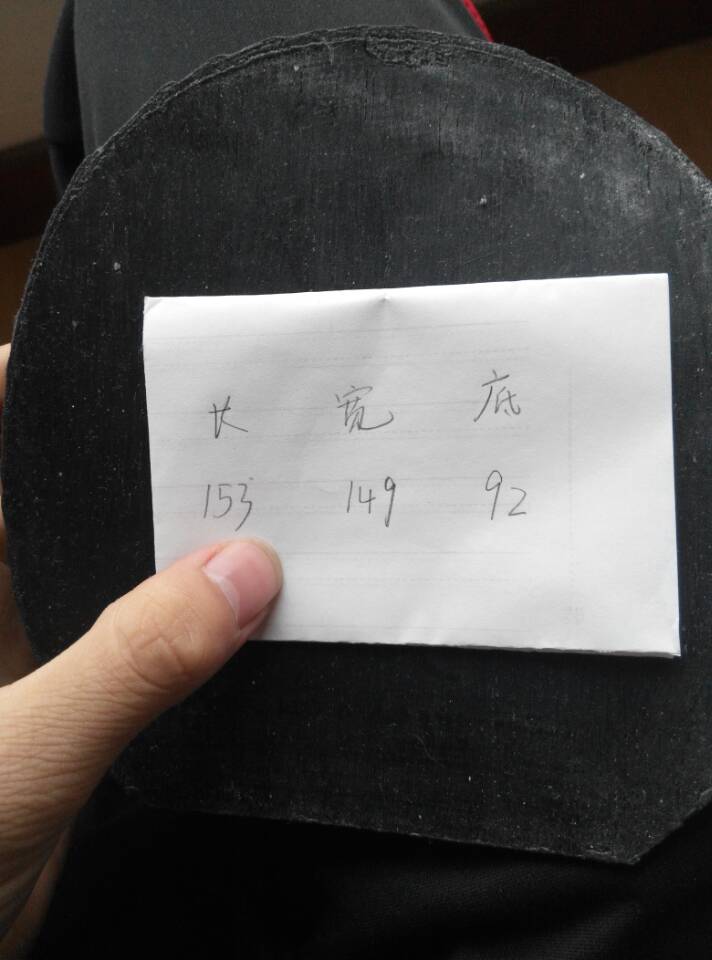 长 宽 底
153 149 92